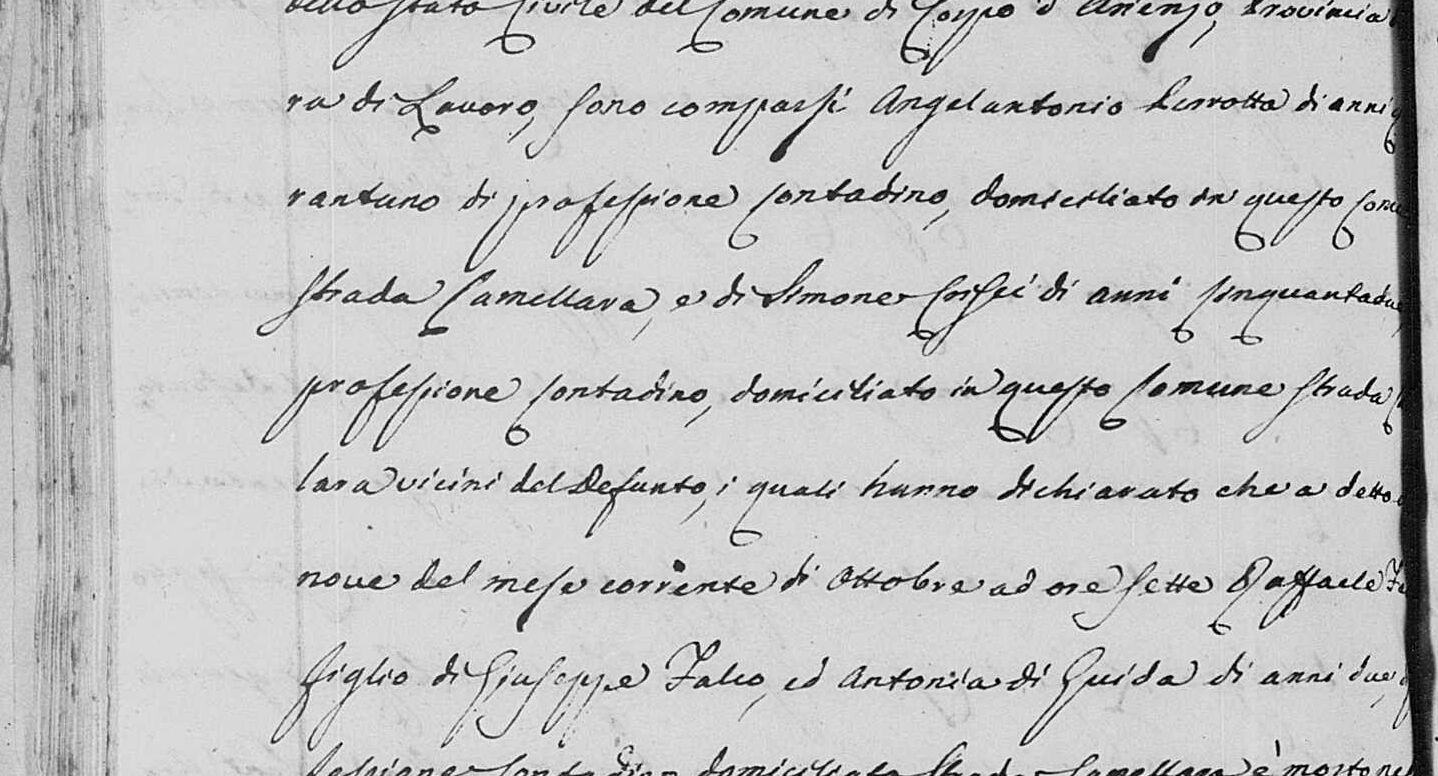 dello Stato Civile del Comune di Corpo d'Arienzo, Provincia
ra di Lavoro, sono comparsi Angelantonio Perrotta di anni
rantuno di professione contadino, domiciliato in questo
strada Camellara, e di Simone Crisci di anni cinquantadue,
professione contadino, domiciliato in questo Comune strada
lara vicini del Defunto, i quali hanno dichiarato che a detto
nove del mese corrente di Ottobre ad ore sette Raffaele
figlio di Giuseppe Falco, ed Antonia di Guida di anni due,
fessione contadino domiciliato Strada Camellara è morto